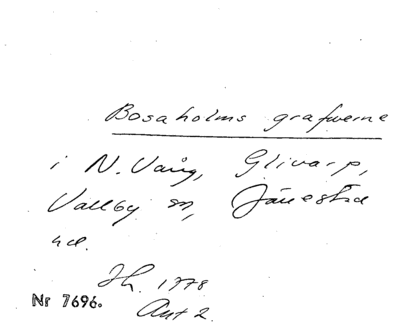 Bosaholms grafwerne
i N. Vång, Glivarp,
Vallby m, Jänestad
Jh. 1778
Nr 7696.
Ant 2.